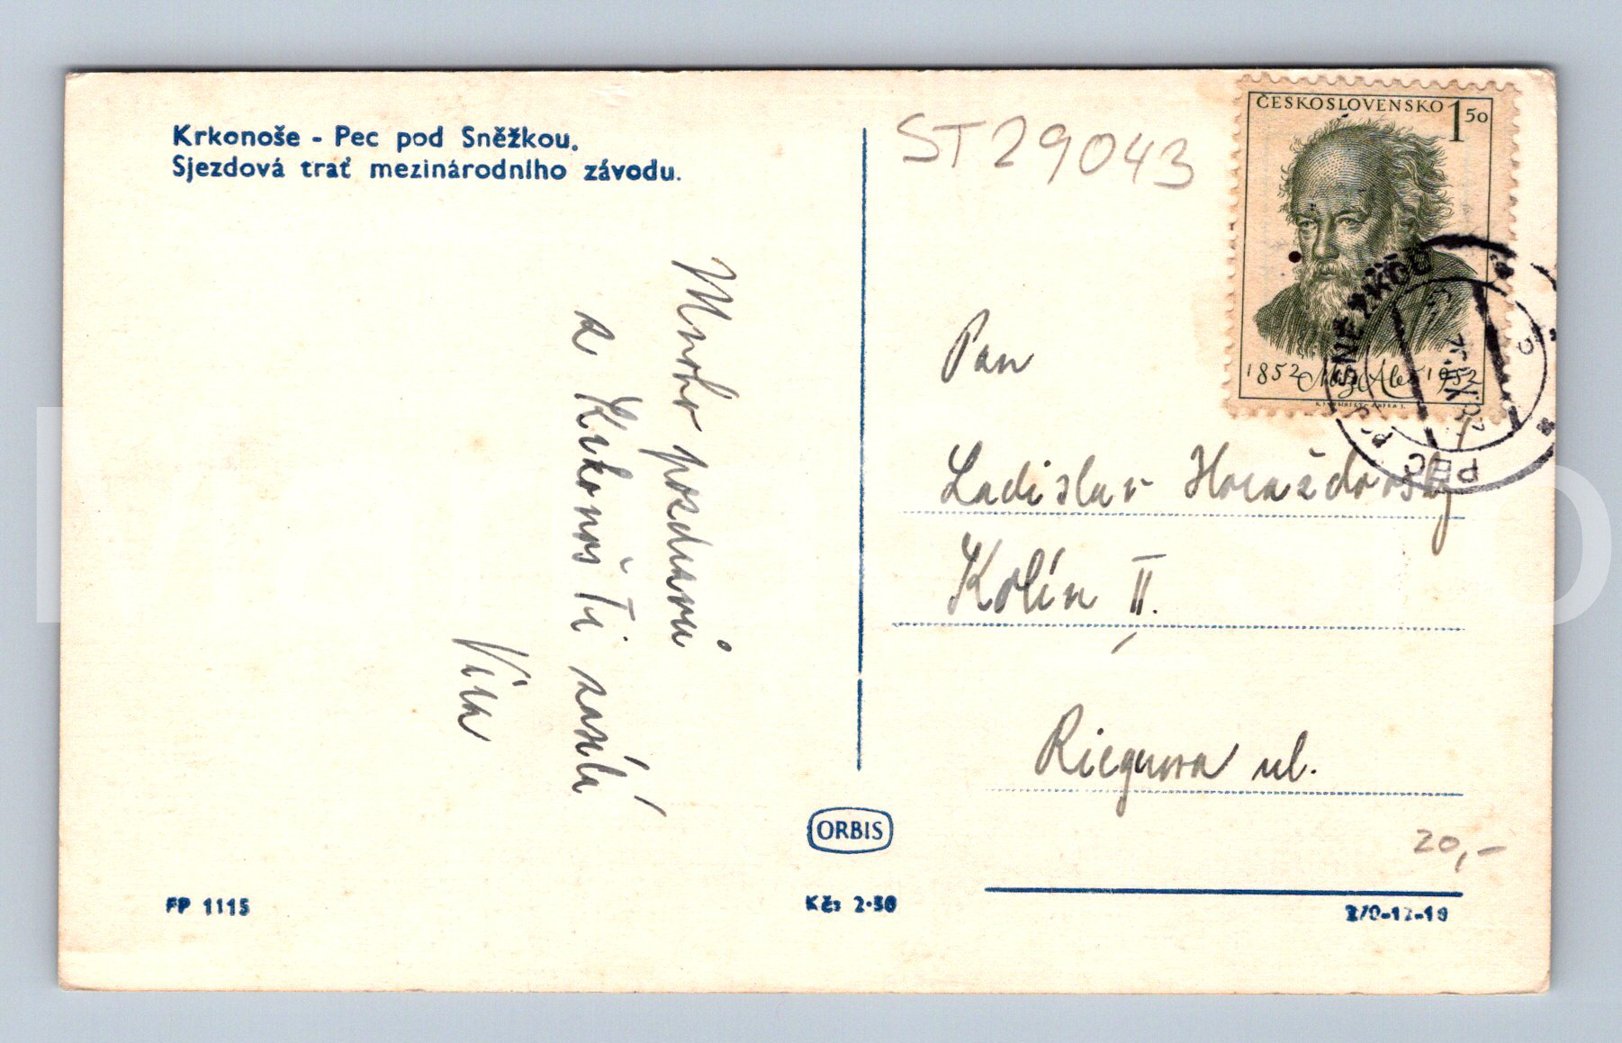 Krkonoše - Pec pod Sněžkou.
Sjezdová trať mezinárodního závodu.
ST29043
ČESKOSLOVENSKO 1 50
1852 Mik. Aleš 1952
PEC P. SNĚŽKOU
Mnoho pozdravů
z Krkonoš Ti zasílá
Věra
Pan
Ladislav Hvězdovský
Kolín II.
Riegrova ul.
ORBIS
20,-
FP 1115
Kčs 2·50